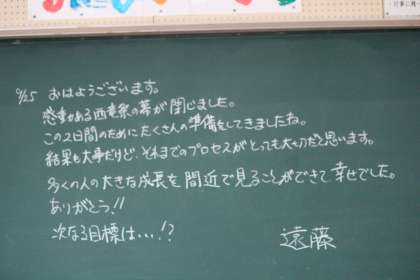 9/25 おはようございます。
感動ある西竜祭の幕が閉じました。
この2日間のためにたくさんの準備をしてきましたね。
結果も大事だけど、それまでのプロセスがとっても大切だと思います。
多くの人の大きな成長を間近で見ることができて幸せでした。
ありがとう!!
次なる目標は…!?
遠藤